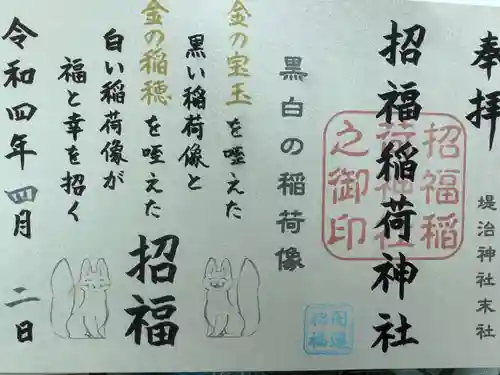 奉拝
堤治神社末社
招福稲荷神社
招福稲荷神社之御印
開運招福
黒白の稲荷像
金の宝玉を咥えた
黒い稲荷像と
金の稲穂を咥えた
白い稲荷像が
福と幸を招く
招福
令和四年四月二日